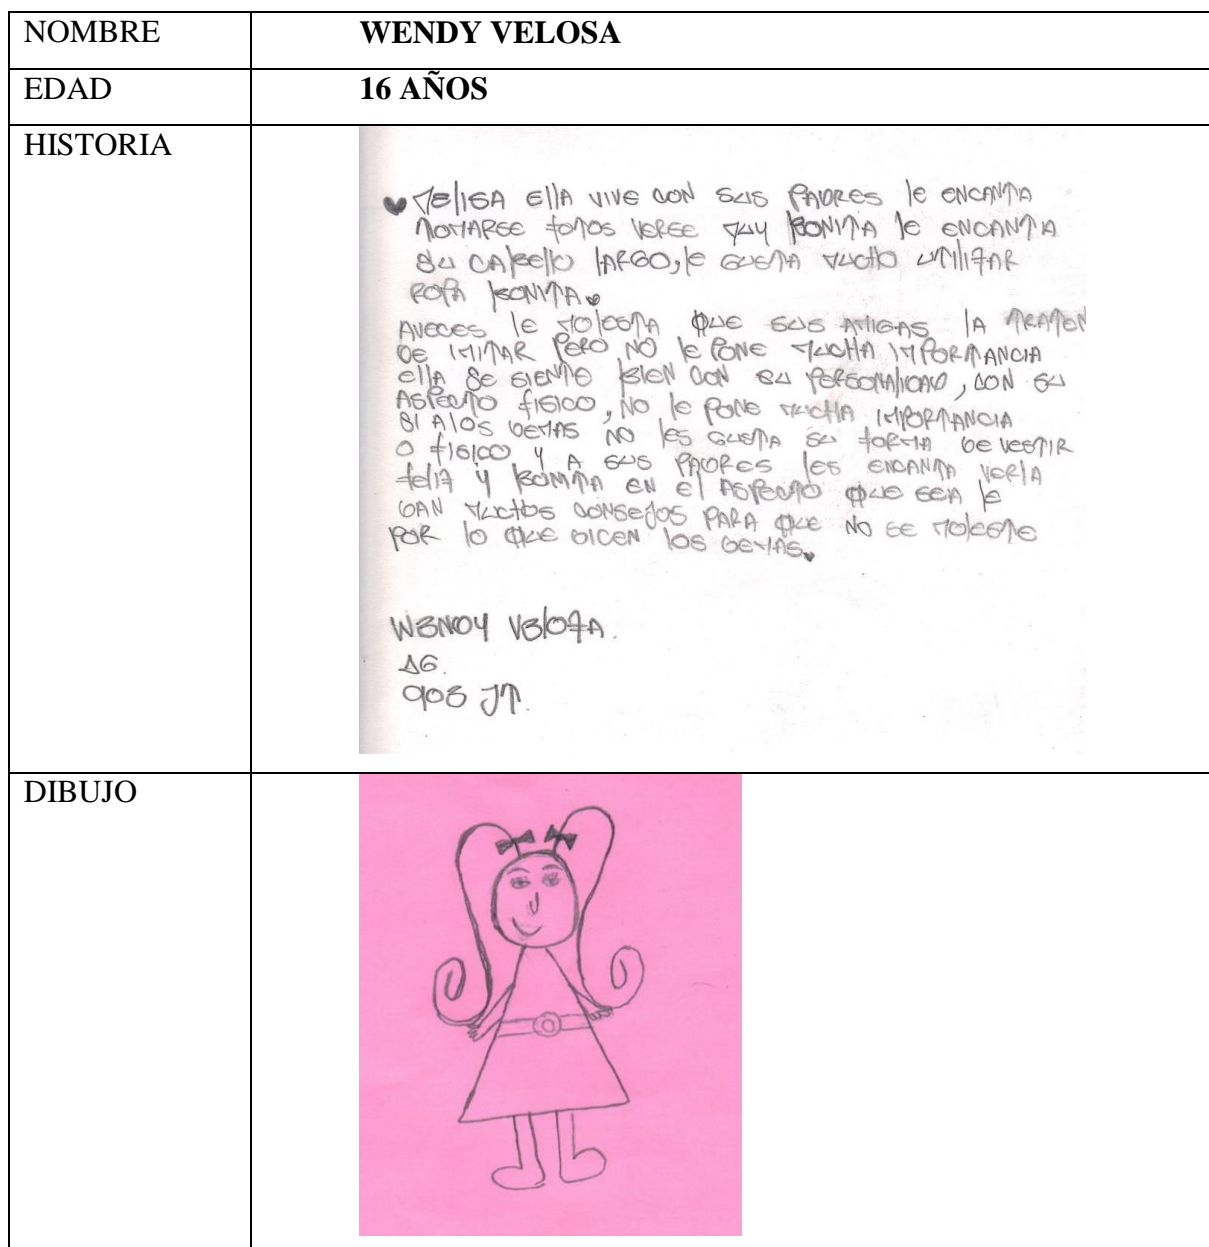 NOMBRE WENDY VELOSA
EDAD 16 AÑOS
HISTORIA
♥ MELISA ELLA VIVE CON SUS PADRES LE ENCANTA
TOMARSE FOTOS VERSE MUY BONITA LE ENCANTA
SU CABELLO LARGO, LE GUSTA MUCHO UTILIZAR
ROPA BONITA ♥
AVECES LE MOLESTA QUE SUS AMIGAS LA TRATEN
DE IMITAR PERO NO LE PONE MUCHA IMPORTANCIA
ELLA SE SIENTE BIEN CON SU PERSONALIDAD, CON SU
ASPECTO FISICO, NO LE PONE MUCHA IMPORTANCIA
SI A LOS DEMAS NO LES GUSTA SU FORMA DE VESTIR
O FISICO Y A SUS PADRES LES ENCANTA VERLA
FELIZ Y BONITA EN EL ASPECTO QUE SEA LE
DAN MUCHOS CONSEJOS PARA QUE NO SE MOLESTE
POR LO QUE DICEN LOS DEMAS ♥
WENDY VELOZA.
16.
903 JT.
DIBUJO